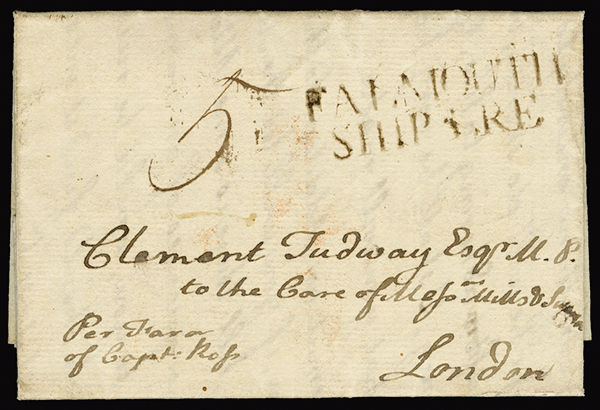 5
FALMOUTH
SHIP LRE
Clement Tudway Esqr. M. P.
to the Care of Messrs. Mills &
Per Favor
of Capt: Ross
London